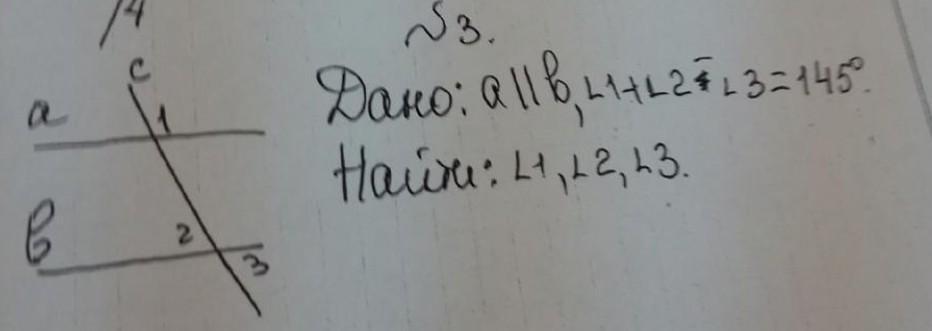 14
№3.
Дано: a||b, ∠1+∠2-∠3=145°.
Найти: ∠1, ∠2, ∠3.
c
a
1
b
2
3